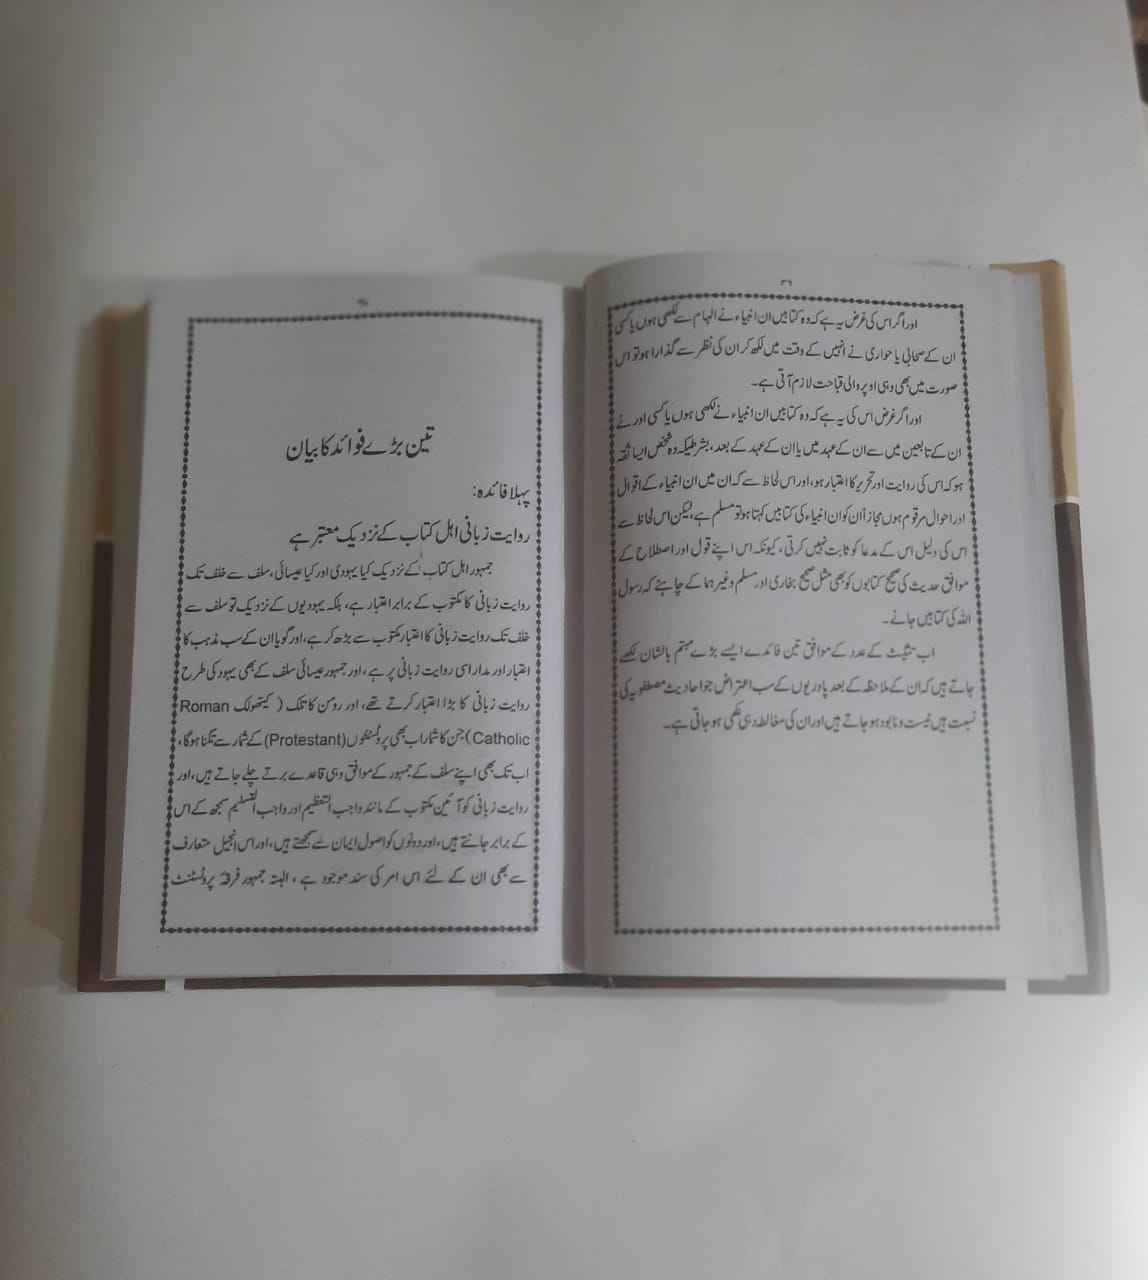 ۳۶
اور اگر اس کی غرض یہ ہے کہ وہ کتابیں ان انبیاء نے الہام سے لکھی ہوں یا کسی
ان کے صحابی یا حواری نے انہیں کے وقت میں لکھ کر ان کی نظر سے گذارا ہو تو اس
صورت میں بھی وہی اوپر والی قباحت لازم آتی ہے۔
اور اگر غرض اس کی یہ ہے کہ وہ کتابیں ان انبیاء نے لکھی ہوں یا کسی اور نے
ان کے تابعین میں سے ان کے عہد میں یا ان کے عہد کے بعد، بشرطیکہ وہ شخص ایسا ثقہ
ہو کہ اس کی روایت اور تحریر کا اعتبار ہو، اور اس لحاظ سے کہ ان میں ان انبیاء کے اقوال
اور احوال مرقوم ہوں مجازاً ان کو ان انبیاء کی کتابیں کہتا ہو تو مسلم ہے، لیکن اس لحاظ سے
اس کی دلیل اس کے مدعا کو ثابت نہیں کرتی، کیونکہ اس اپنے قول اور اصطلاح کے
موافق حدیث کی صحیح کتابوں کو بھی مثل صحیح بخاری اور مسلم وغیرہما کے چاہئے کہ رسول
اللہ کی کتابیں جانے۔
اب تثلیث کے عدد کے موافق تین فائدے ایسے بڑے مہتم بالشان لکھے
جاتے ہیں کہ ان کے ملاحظہ کے بعد پادریوں کے سب اعتراض جو احادیث مصطفویہ کی
نسبت ہیں نیست و نابود ہو جاتے ہیں اور ان کی مغالطہ دہی نکمی ہو جاتی ہے۔
تین بڑے فوائد کا بیان
پہلا فائدہ:
روایت زبانی اہل کتاب کے نزدیک معتبر ہے
جمہور اہل کتاب کے نزدیک کیا یہودی اور کیا عیسائی، سلف سے خلف تک
روایت زبانی کا مکتوب کے برابر اعتبار ہے، بلکہ یہودیوں کے نزدیک تو سلف سے
خلف تک روایت زبانی کا اعتبار مکتوب سے بڑھ کر ہے، اور گویا ان کے سب مذہب کا
اعتبار اور مدار اسی روایت زبانی پر ہے، اور جمہور عیسائی سلف کے بھی یہود کی طرح
روایت زبانی کا بڑا اعتبار کرتے تھے، اور رومن کاتلک (کیتھولک Roman
Catholic) جن کا شمار اب بھی پروٹسٹنٹوں (Protestant) کے شمار سے تگنا ہوگا،
اب تک بھی اپنے سلف کے جمہور کے موافق وہی قاعدے برتے چلے جاتے ہیں، اور
روایت زبانی کو آئین مکتوب کے مانند واجب التعظیم اور واجب التسلیم سمجھ کے اس
کے برابر جانتے ہیں، اور دونوں کو اصول ایمان سے سمجھتے ہیں، اور اس انجیل متعارف
سے بھی ان کے لئے اس امر کی سند موجود ہے، البتہ جمہور فرقہ پروٹسٹنٹ